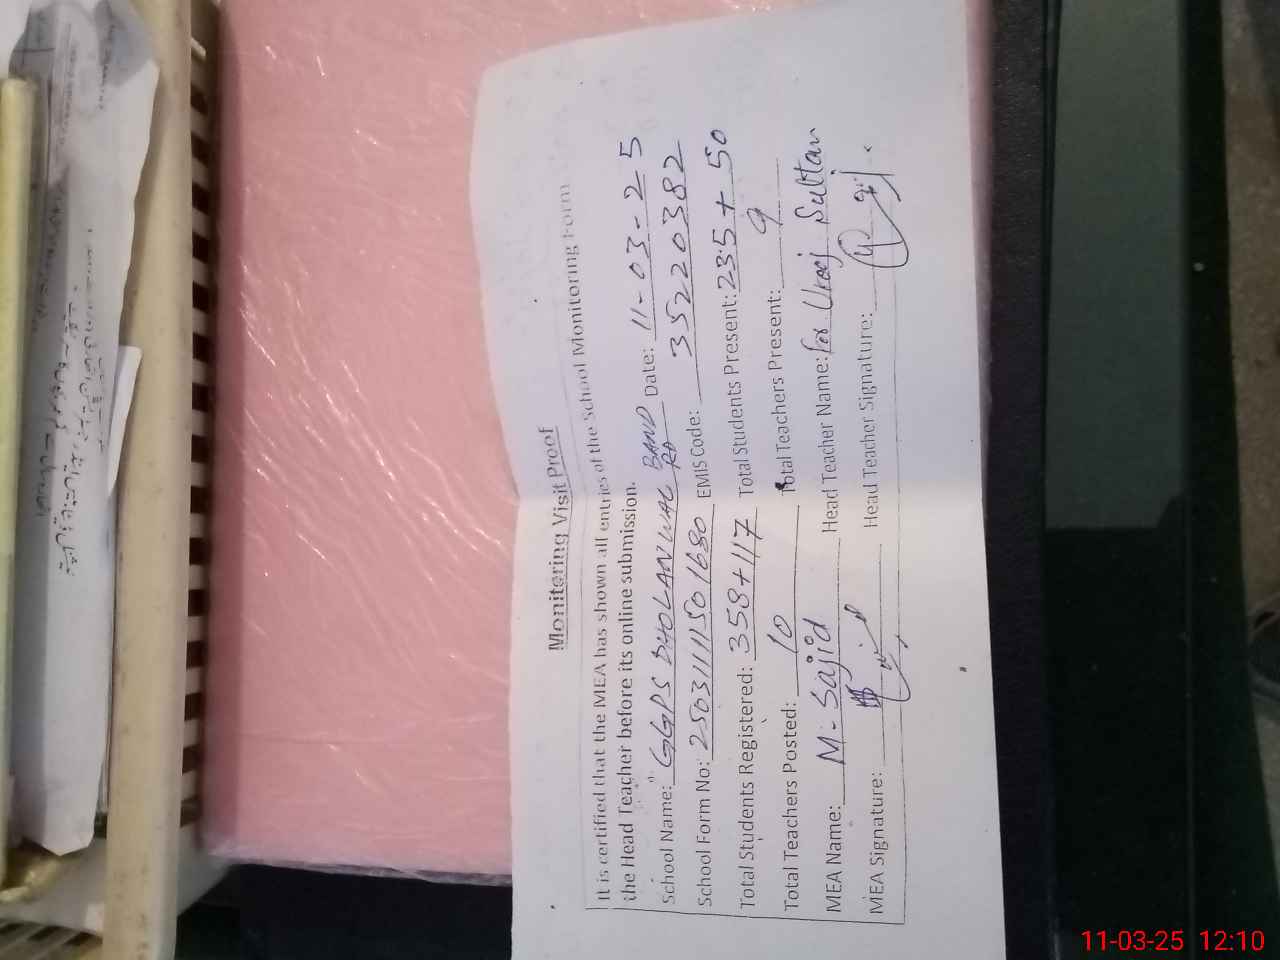 Monitoring Visit Proof
It is certified that the MEA has shown all entries of the School Monitoring Form
the Head Teacher before its online submission.
School Name: GGPS DHOLANWAL BAND RD Date: 11-03-25
School Form No: 25031111501680 EMIS Code: 35220382
Total Students Registered: 358+117 Total Students Present: 235+50
Total Teachers Posted: 10 Total Teachers Present: 9
MEA Name: M. Sajid Head Teacher Name: for Urooj Sultan
MEA Signature: Head Teacher Signature:
11-03-25 12:10